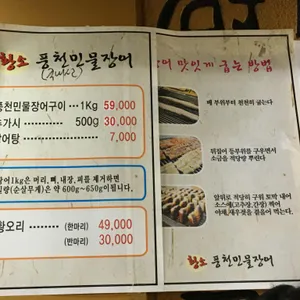 황소 풍천민물장어
풍천민물장어구이 ... 1Kg 59,000
추가시 ........ 500g 30,000
장어탕 ........ 7,000
장어 1Kg은 머리, 뼈, 내장, 피를 제거하면
량(순살무게)은 약 600g~650g이 됩니다.
황오리 ........ (한마리) 49,000
(반마리) 30,000
어 맛있게 굽는 방법
배 부위부터 천천히 굽는다
뒤집어 등부위를 구우면서
소금을 적당량 뿌린다
앞뒤로 적당히 구워 토막 내어
소스에(고추장,간장) 찍어
야채,채무쳐를 곁들여 먹는다.
황소 풍천민물장어